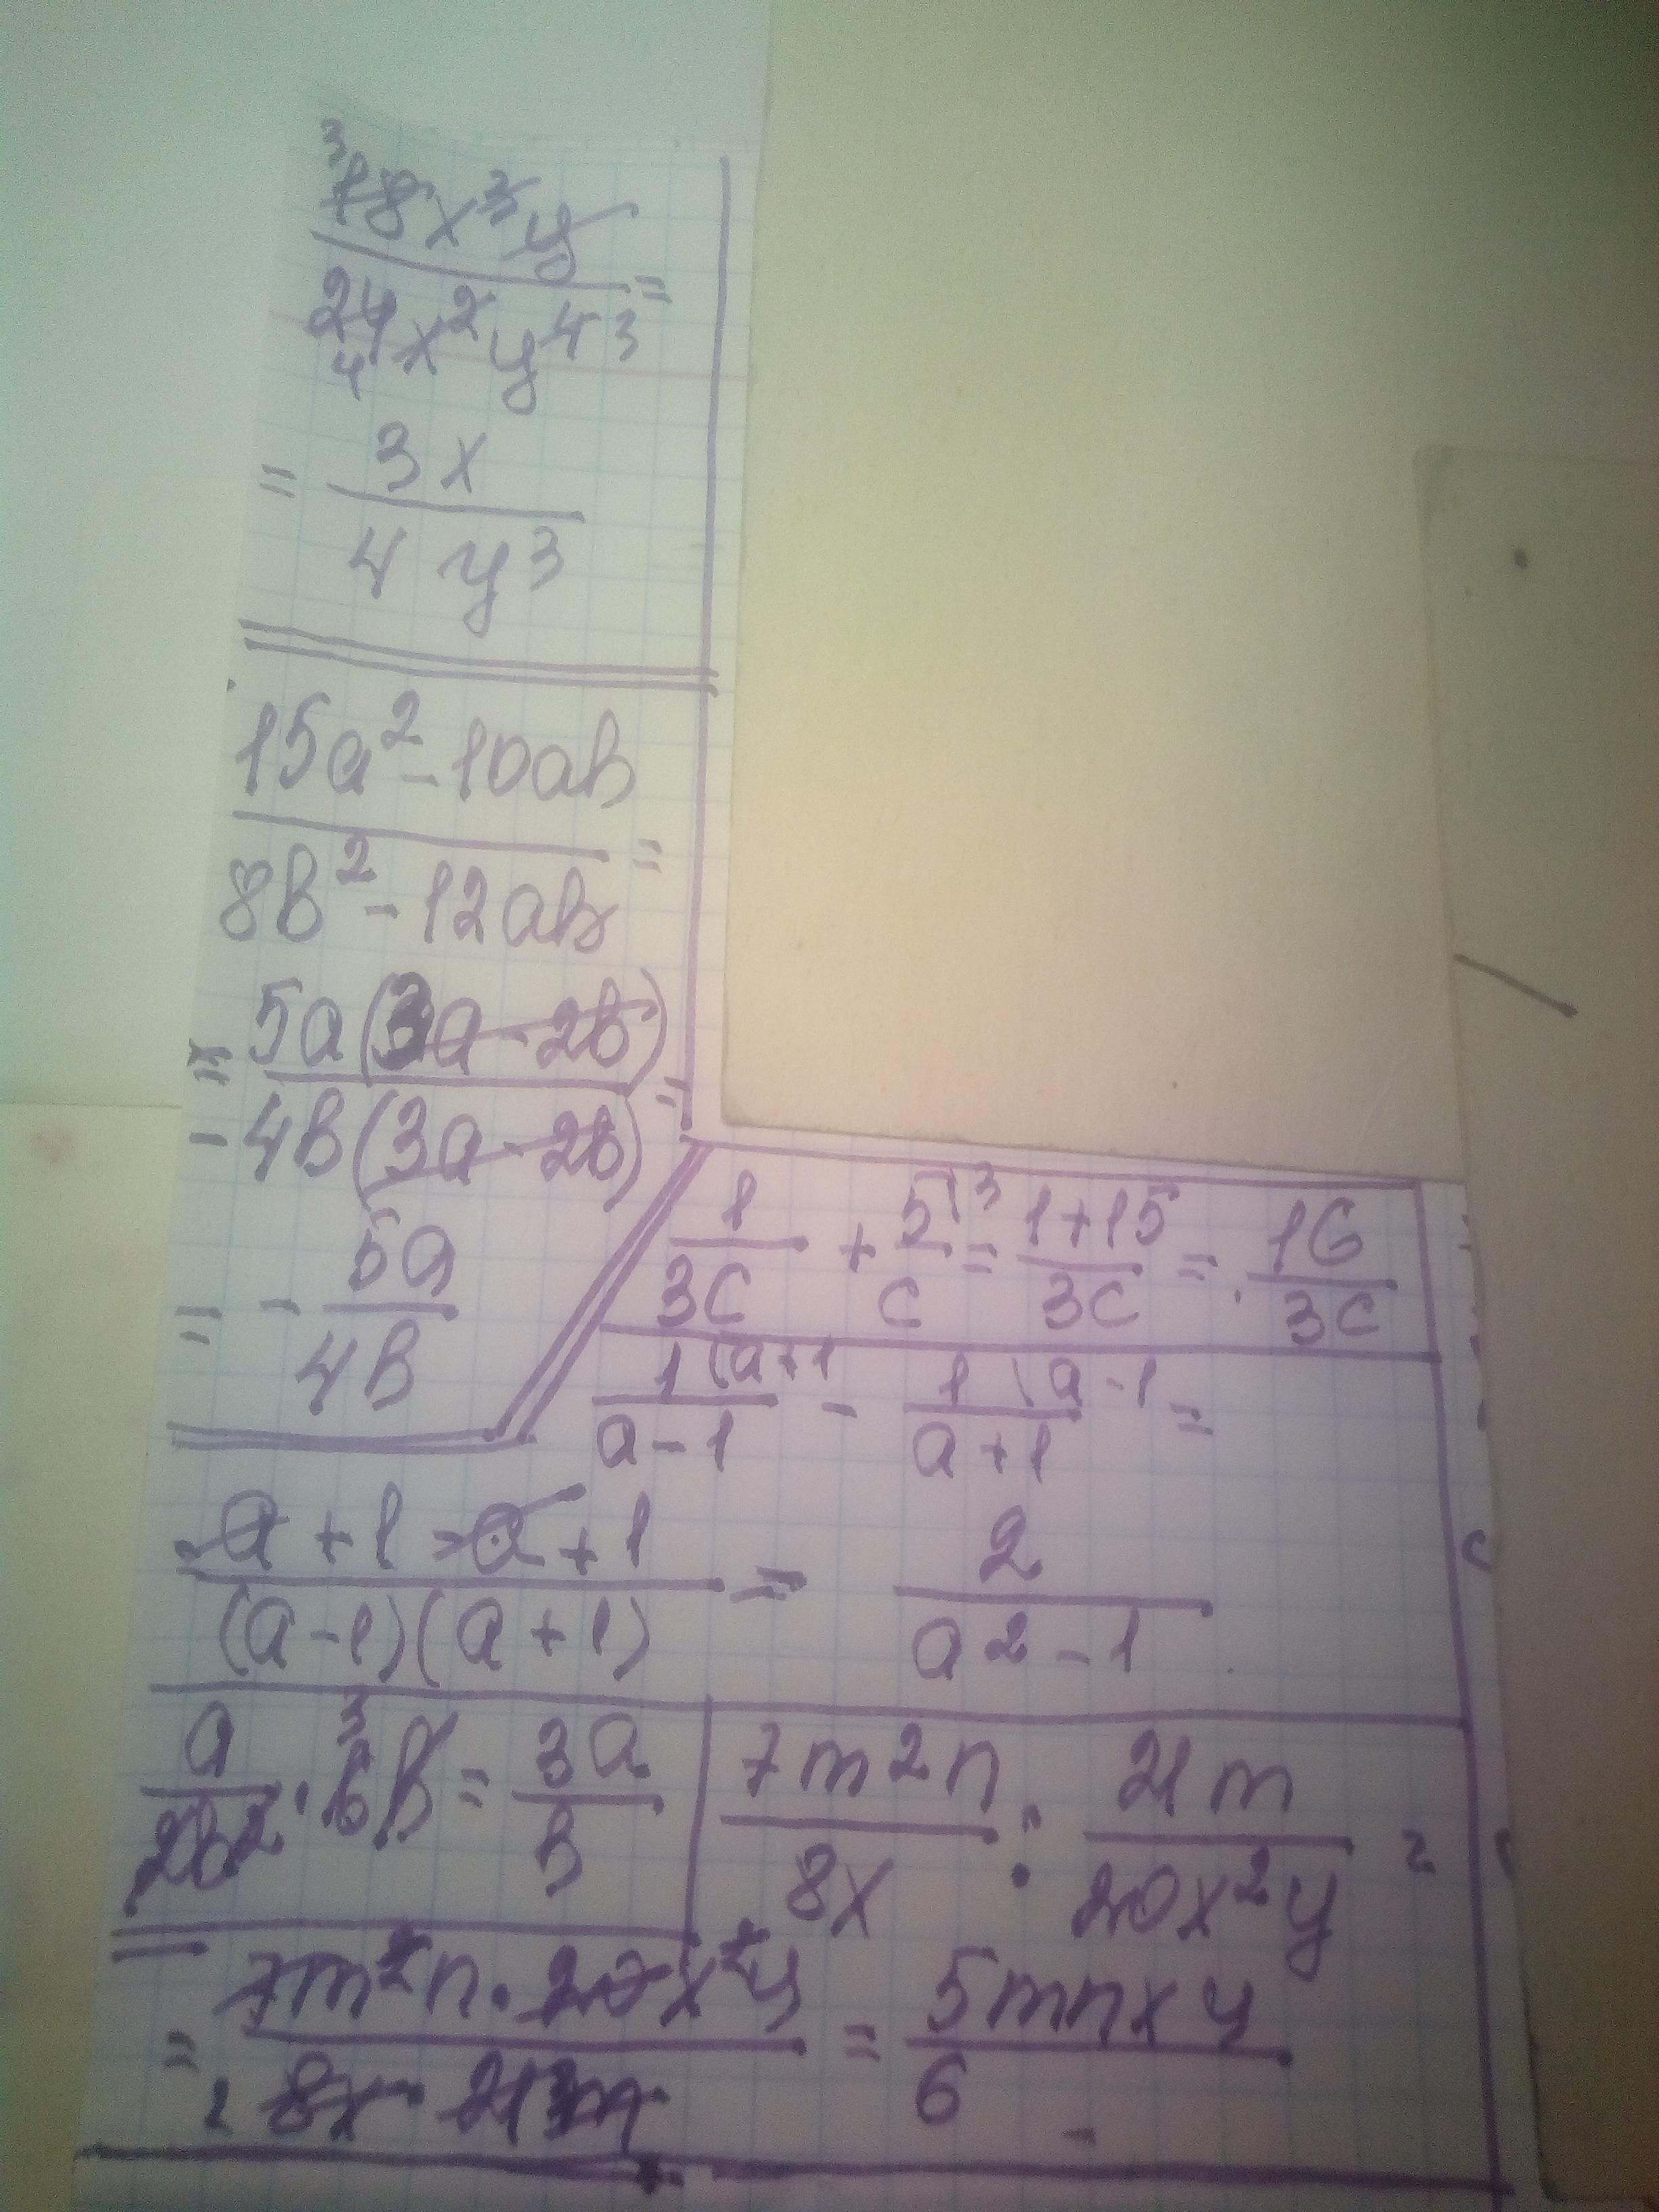 18x³y 3
24x²y⁴ 4 3 =
= 3x
4y³
15a² - 10ab
8b² - 12ab =
= 5a(3a - 2b)
- 4b(3a - 2b) =
= - 5a
4b
1/3c + 5\3/c = 1+15/3c = 16/3c
1\a+1/a-1 - 1\a-1/a+1 =
a + 1 - a + 1/(a-1)(a+1) = 2/a²-1
a/2b² · 6b 3 = 3a/b
7m²n/8x : 21m/20x²y =
= 7m²n · 20x²y/8x · 21m 2 3 = 5mnxy/6